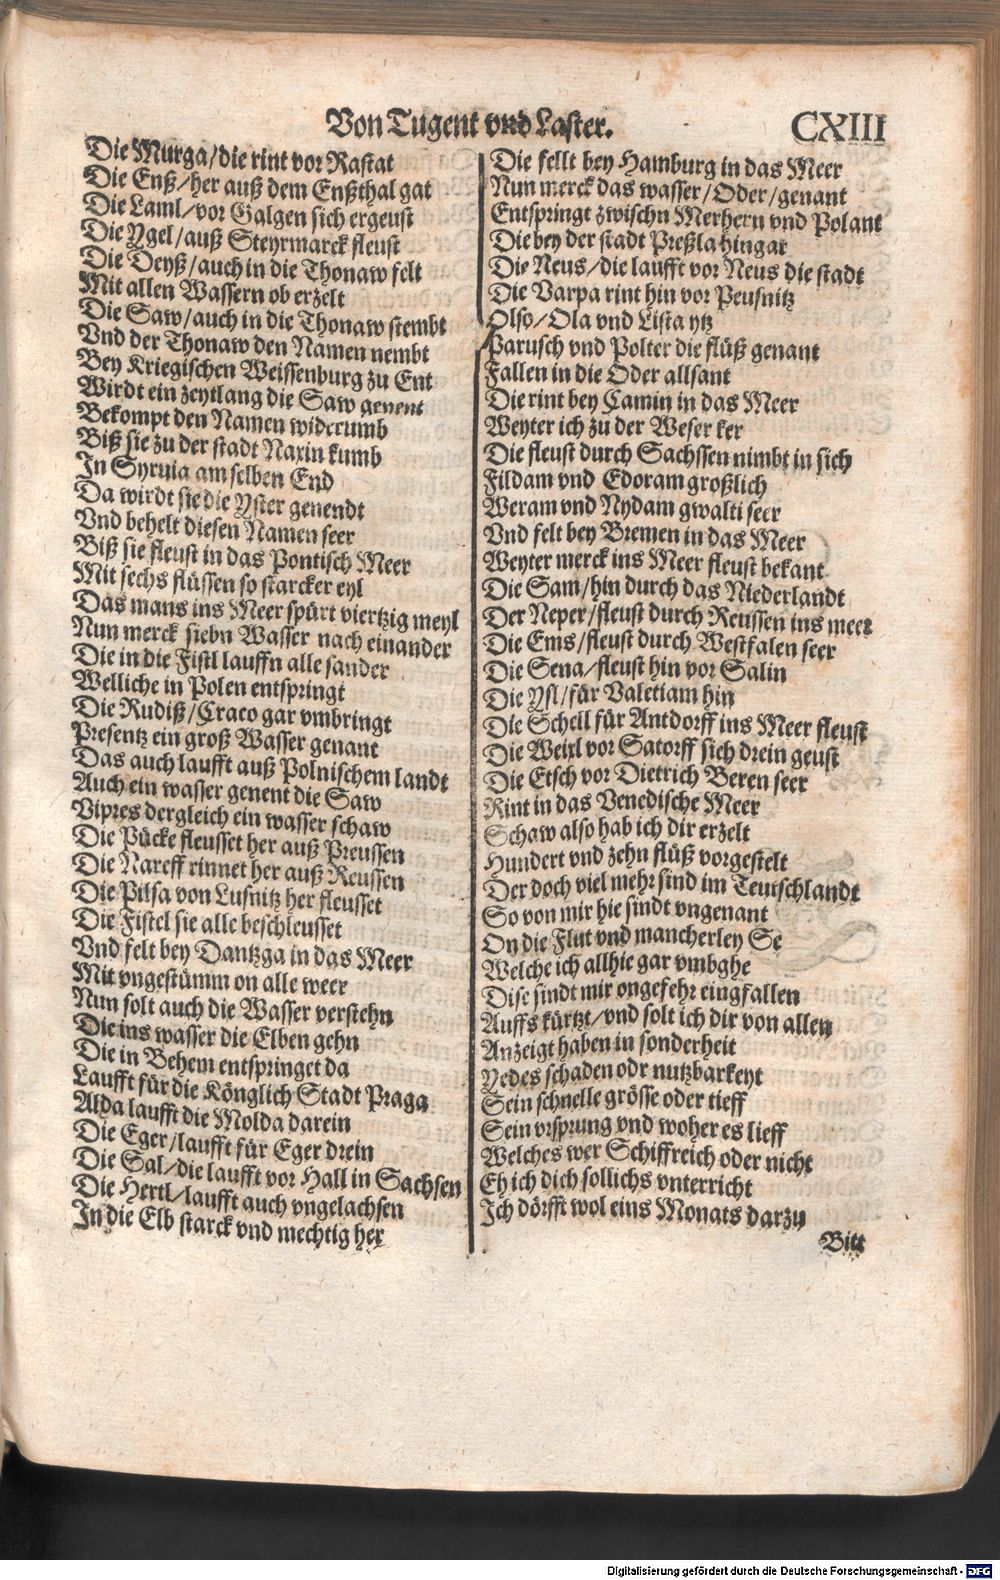 Von Tugent vnd Laster.
CXIII
Die Murga/die rint vor Rastat
Die Enß/her auß dem Enßthal gat
Die Laml/vor Galgen sich ergeust
Die Ygel/auß Steyrmarck fleust
Die Deyß/auch in die Thonaw felt
Mit allen Wassern ob erzelt
Die Saw/auch in die Thonaw stembt
Vnd der Thonaw den Namen nembt
Bey Kriegischen Weissenburg zu Ent
Wirdt ein zeytlang die Saw genent
Bekompt den Namen widerumb
Biß sie zu der stadt Naxin kumb
In Syruia am selben End
Da wirdt sie die Yster genendt
Vnd behelt diesen Namen seer
Biß sie fleust in das Pontisch Meer
Mit sechs flüssen so starcker eyl
Das mans ins Meer spürt viertzig meyl
Nun merck siebn Wasser nach einander
Die in die Fistl lauffn alle sander
Welliche in Polen entspringt
Die Rudiß/Craco gar vmbringt
Presentz ein groß Wasser genant
Das auch laufft auß Polnischem landt
Auch ein wasser genent die Saw
Vipres dergleich ein wasser schaw
Die Pücke fleusset her auß Preussen
Die Nareff rinnet her auß Reussen
Die Pilsa von Lusnitz her fleusset
Die Fistel sie alle beschleusset
Vnd felt bey Dantzga in das Meer
Mit vngestümm on alle weer
Nun solt auch die Wasser verstehn
Die ins wasser die Elben gehn
Die in Behem entspringet da
Laufft für die Königlich Stadt Praga
Alda laufft die Molda darein
Die Eger/laufft für Eger drein
Die Sal/die laufft vor Hall in Sachsen
Die Hertl/laufft auch vngelachsen
In die Elb starck vnd mechtig her
Die fellt bey Hamburg in das Meer
Nun merck das wasser/Oder/genant
Entspringt zwischn Merhern vnd Polant
Die bey der stadt Preßla hingar
Die Neus/die laufft vor Neus die stadt
Die Varpa rint hin vor Peusnitz
Olso/Ola vnd Lista ytz
Parusch vnd Polter die flüß genant
Fallen in die Oder allsant
Die rint bey Camin in das Meer
Weyter ich zu der Weser ker
Die fleust durch Sachssen nimbt in sich
Fildam vnd Edoram großlich
Weram vnd Nydam gwalti seer
Vnd felt bey Bremen in das Meer
Weyter merck ins Meer fleust bekant
Die Sam/hin durch das Niederlandt
Der Neper/fleust durch Reussen ins meer
Die Ems/fleust durch Westfalen seer
Die Sena/fleust hin vor Salin
Die Ysl/für Valetiam hin
Die Schell für Antdorff ins Meer fleust
Die Weixl vor Satorff sich drein geust
Die Etsch vor Dietrich Beren seer
Rint in das Venedische Meer
Schaw also hab ich dir erzelt
Hundert vnd zehn flüß vorgestelt
Der doch viel mehr sind im Teutschlandt
So von mir hie sindt vngenant
On die Flut vnd mancherley Se
Welche ich allhie gar vmbghe
Dise sindt mir ongefehr eingfallen
Auffs kürtzt/vnd solt ich dir von allen
Anzeigt haben in sonderheit
Yedes schaden odr nutzbarkeyt
Sein schnelle grösse oder tieff
Sein vrsprung vnd woher es lieff
Welches wer Schiffreich oder nicht
Eh ich dich sollichs vnterricht
Ich dörfft wol eins Monats darzu
Bitt
Digitalisierung gefördert durch die Deutsche Forschungsgemeinschaft - DFG